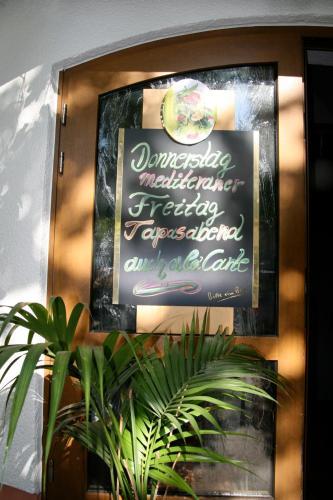 Donnerstag
Mediteraner
Freitag
Tapasabend
auch a la Carte